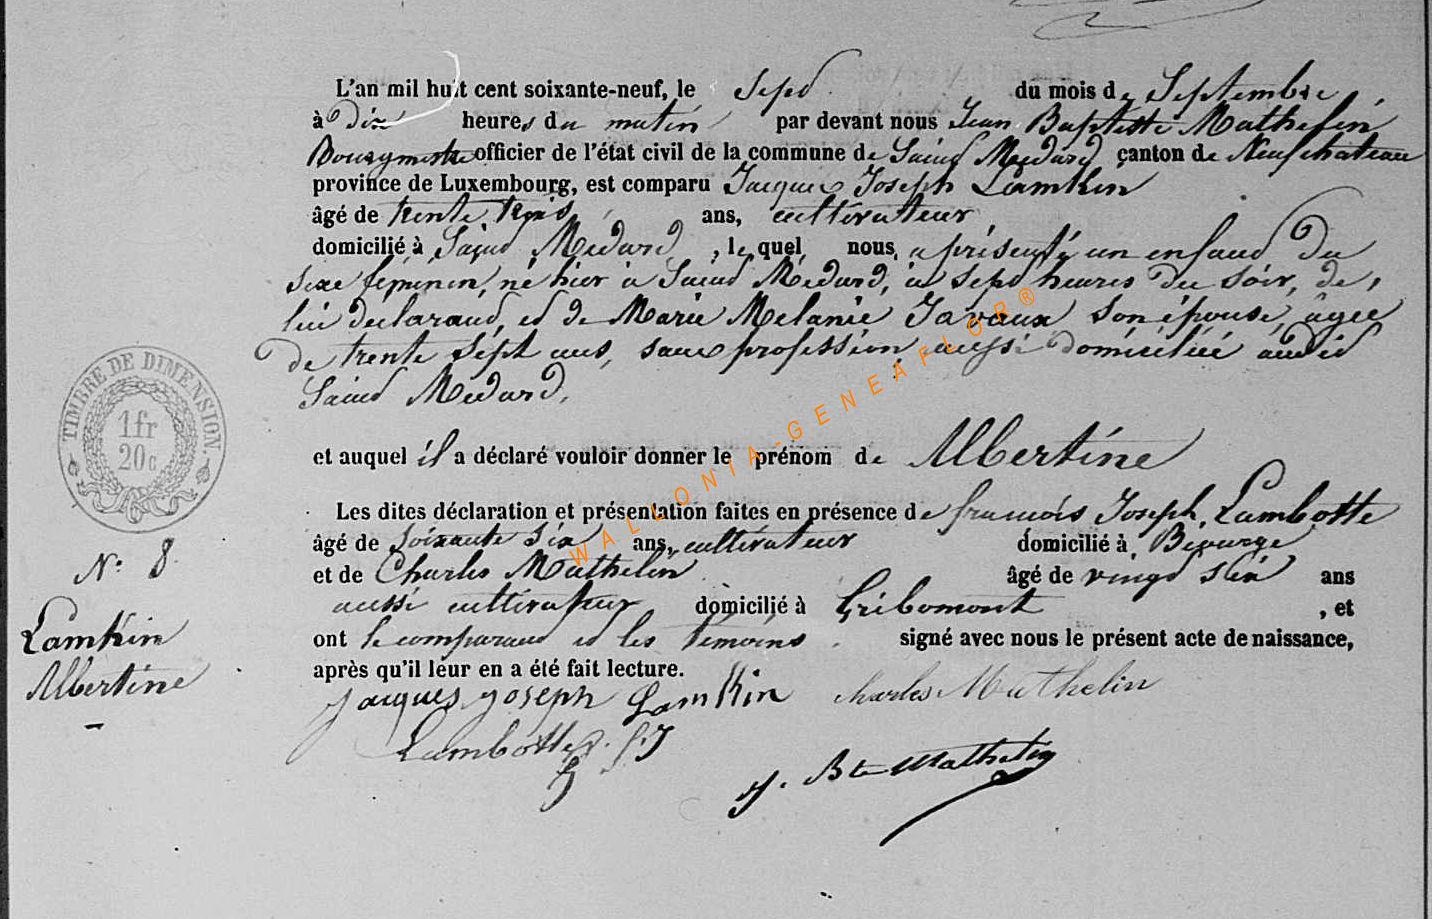 L'an mil huit cent soixante-neuf, le Sept du mois de Septembre,
à Dix heures du matin par devant nous Jean Baptiste Mathelin
Bourgmestre officier de l'état civil de la commune de Saint Médard canton de Neufchateau
province de Luxembourg, est comparu Jacques Joseph Lamkin
âgé de trente trois ans, cultivateur
domicilié à Saint Médard, lequel nous a présenté un enfant Du
sexe féminin, né hier à Saint Médard, à sept heures du soir, de,
lui declarant, et de Marie Mélanie Javaux son épouse, âgée
de trente sept ans, sans profession, aussi domiciliée audit
Saint Médard.
TIMBRE DE DIMENSION.
1 fr
20 c
et auquel il a déclaré vouloir donner le prénom de Albertine
Les dites déclaration et présentation faites en présence de francois Joseph, Lambotte
âgé de soixante six ans, cultivateur domicilié à
et de Charles Mathelin âgé de vingt six ans
aussi cultivateur domicilié à Gribomont, et
ont le comparant et les témoins signé avec nous le présent acte de naissance,
après qu'il leur en a été fait lecture.
N° 8
Lamkin
Albertine
jacques joseph Lamkin charles Mathelin
Lambotte f. J
J. Bte Mathelin
WALLONIA-GENEAFLOR®